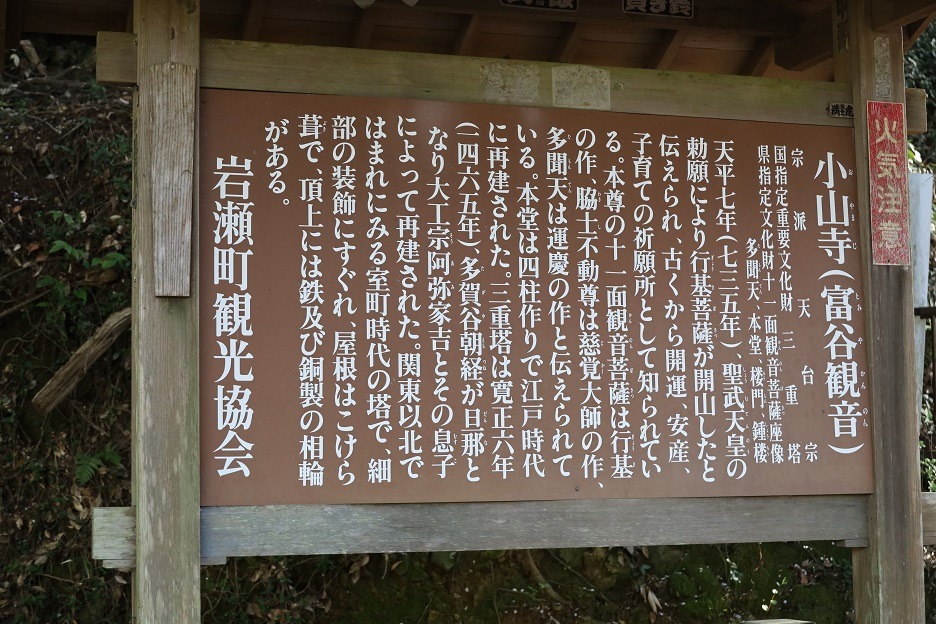 小山寺(富谷観音)
宗派 天台宗
国指定重要文化財 三重塔
県指定文化財十一面観音菩薩座像
多聞天、本堂、楼門、鍾楼
天平七年(七三五年)、聖武天皇の
勅願により行基菩薩が開山したと
伝えられ、古くから開運、安産、
子育ての祈願所として知られてい
る。本尊の十一面観音菩薩は行基
の作、脇士不動尊は慈覚大師の作、
多聞天は運慶の作と伝えられて
いる。本堂は四柱作りで江戸時代
に再建された。三重塔は寛正六年
(一四六五年)、多賀谷朝経が旦那と
なり大工宗阿弥家吉とその息子
によって再建された。関東以北で
はまれにみる室町時代の塔で、細
部の装飾にすぐれ、屋根はこけら
葺で、頂上には鉄及び銅製の相輪
がある。
岩瀬町観光協会
火気注意